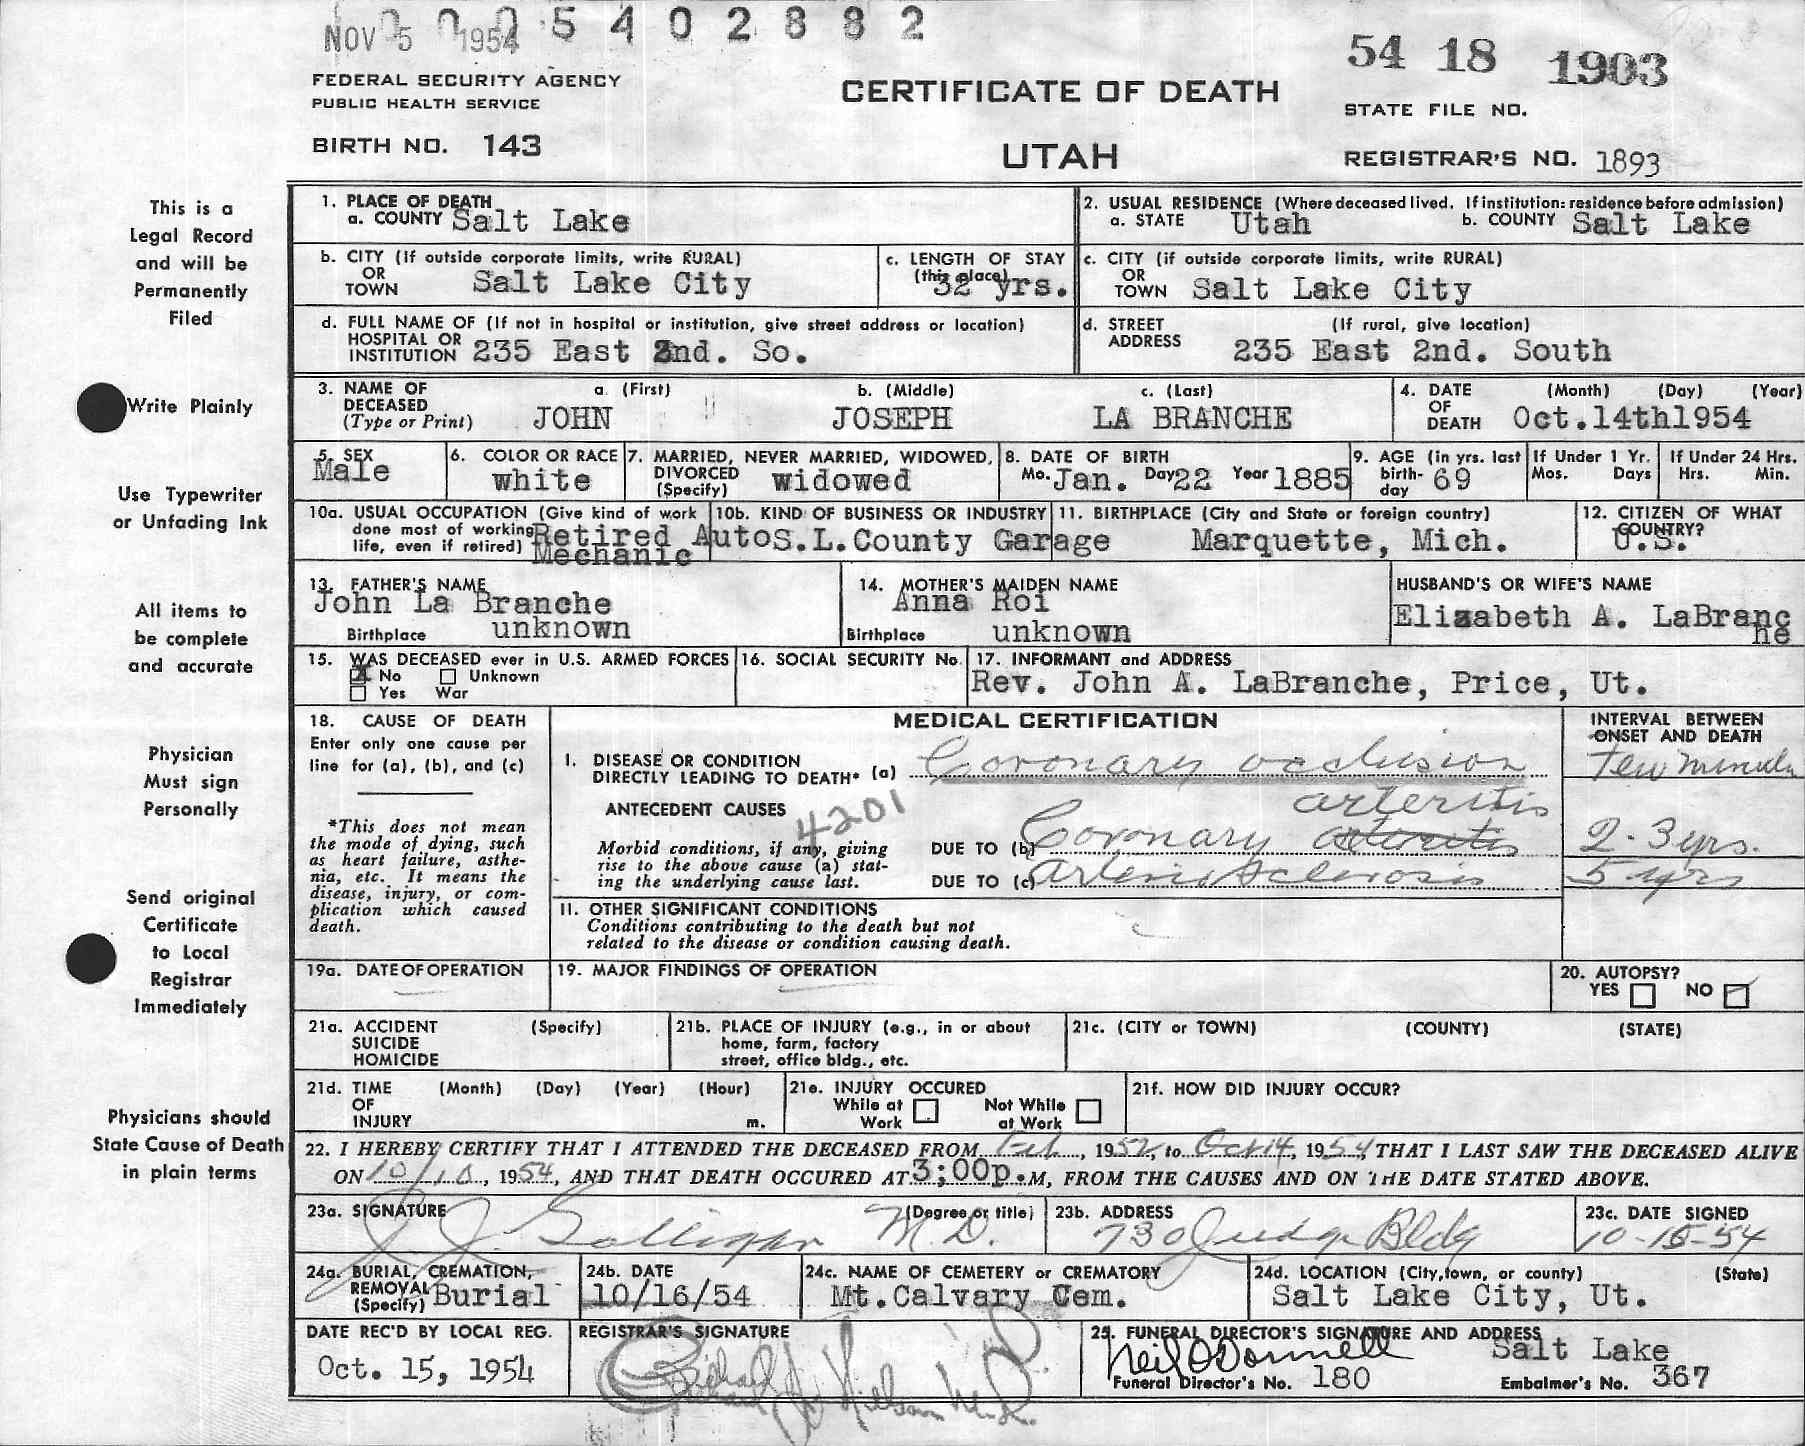 0 0 0 5 4 0 2 8 8 2
NOV 5 1954
54 18 1903
FEDERAL SECURITY AGENCY
PUBLIC HEALTH SERVICE
CERTIFICATE OF DEATH
STATE FILE NO.
BIRTH NO. 143
UTAH
REGISTRAR'S NO. 1893
This is a
Legal Record
and will be
Permanently
Filed
Write Plainly
Use Typewriter
or Unfading Ink
All items to
be complete
and accurate
Physician
Must sign
Personally
Send original
Certificate
to Local
Registrar
Immediately
Physicians should
State Cause of Death
in plain terms
1. PLACE OF DEATH
a. COUNTY Salt Lake
2. USUAL RESIDENCE (Where deceased lived. If institution: residence before admission)
a. STATE Utah b. COUNTY Salt Lake
b. CITY (If outside corporate limits, write RURAL)
OR
TOWN Salt Lake City
c. LENGTH OF STAY
(this place)
32 yrs.
c. CITY (if outside corporate limits, write RURAL)
OR
TOWN Salt Lake City
d. FULL NAME OF (If not in hospital or institution, give street address or location)
HOSPITAL OR
INSTITUTION 235 East 2nd. So.
d. STREET (If rural, give location)
ADDRESS 235 East 2nd. South
3. NAME OF a. (First) b. (Middle) c. (Last)
DECEASED
(Type or Print) JOHN JOSEPH LA BRANCHE
4. DATE (Month) (Day) (Year)
OF
DEATH Oct.14th1954
5. SEX
Male
6. COLOR OR RACE
white
7. MARRIED, NEVER MARRIED, WIDOWED,
DIVORCED
(Specify) widowed
8. DATE OF BIRTH
Mo. Jan. Day 22 Year 1885
9. AGE (in yrs. last
birth-
day 69
If Under 1 Yr.
Mos. Days
If Under 24 Hrs.
Hrs. Min.
10a. USUAL OCCUPATION (Give kind of work
done most of working
life, even if retired) Retired Auto
Mechanic
10b. KIND OF BUSINESS OR INDUSTRY
S.L.County Garage
11. BIRTHPLACE (City and State or foreign country)
Marquette, Mich.
12. CITIZEN OF WHAT
COUNTRY?
U.S.
13. FATHER'S NAME
John La Branche
Birthplace unknown
14. MOTHER'S MAIDEN NAME
Anna Roi
Birthplace unknown
HUSBAND'S OR WIFE'S NAME
Elizabeth A. LaBranc
he
15. WAS DECEASED ever in U.S. ARMED FORCES
No Unknown
Yes War
16. SOCIAL SECURITY No.
17. INFORMANT and ADDRESS
Rev. John A. LaBranche, Price, Ut.
18. CAUSE OF DEATH
Enter only one cause per
line for (a), (b), and (c)
*This does not mean
the mode of dying, such
as heart failure, asthe-
nia, etc. It means the
disease, injury, or com-
plication which caused
death.
MEDICAL CERTIFICATION
INTERVAL BETWEEN
ONSET AND DEATH
I. DISEASE OR CONDITION
DIRECTLY LEADING TO DEATH* (a) Coronary occlusion
few minutes
ANTECEDENT CAUSES
4201
arteritis
Morbid conditions, if any, giving
rise to the above cause (a) stat-
ing the underlying cause last.
DUE TO (b) Coronary arteritis
2-3 yrs.
DUE TO (c) arteriosclerosis
5 yrs
II. OTHER SIGNIFICANT CONDITIONS
Conditions contributing to the death but not
related to the disease or condition causing death.
19a. DATE OF OPERATION
19. MAJOR FINDINGS OF OPERATION
20. AUTOPSY?
YES NO
21a. ACCIDENT (Specify)
SUICIDE
HOMICIDE
21b. PLACE OF INJURY (e.g., in or about
home, farm, factory
street, office bldg., etc.
21c. (CITY or TOWN) (COUNTY) (STATE)
21d. TIME (Month) (Day) (Year) (Hour)
OF
INJURY m.
21e. INJURY OCCURED
While at Not While
Work at Work
21f. HOW DID INJURY OCCUR?
22. I HEREBY CERTIFY THAT I ATTENDED THE DECEASED FROM Feb, 1952, to Oct 14, 1954, THAT I LAST SAW THE DECEASED ALIVE
ON 10/10, 1954, AND THAT DEATH OCCURED AT 3;00p.M, FROM THE CAUSES AND ON THE DATE STATED ABOVE.
23a. SIGNATURE (Degree or title)
J. J. Galligan M.D.
23b. ADDRESS
730 Judge Bldg
23c. DATE SIGNED
10-15-54
24a. BURIAL, CREMATION,
REMOVAL
(Specify) Burial
24b. DATE
10/16/54
24c. NAME OF CEMETERY or CREMATORY
Mt.Calvary Cem.
24d. LOCATION (City,town, or county) (State)
Salt Lake City, Ut.
DATE REC'D BY LOCAL REG.
Oct. 15, 1954
REGISTRAR'S SIGNATURE
25. FUNERAL DIRECTOR'S SIGNATURE AND ADDRESS
Neil O'Donnell Salt Lake
Funeral Director's No. 180 Embalmer's No. 367